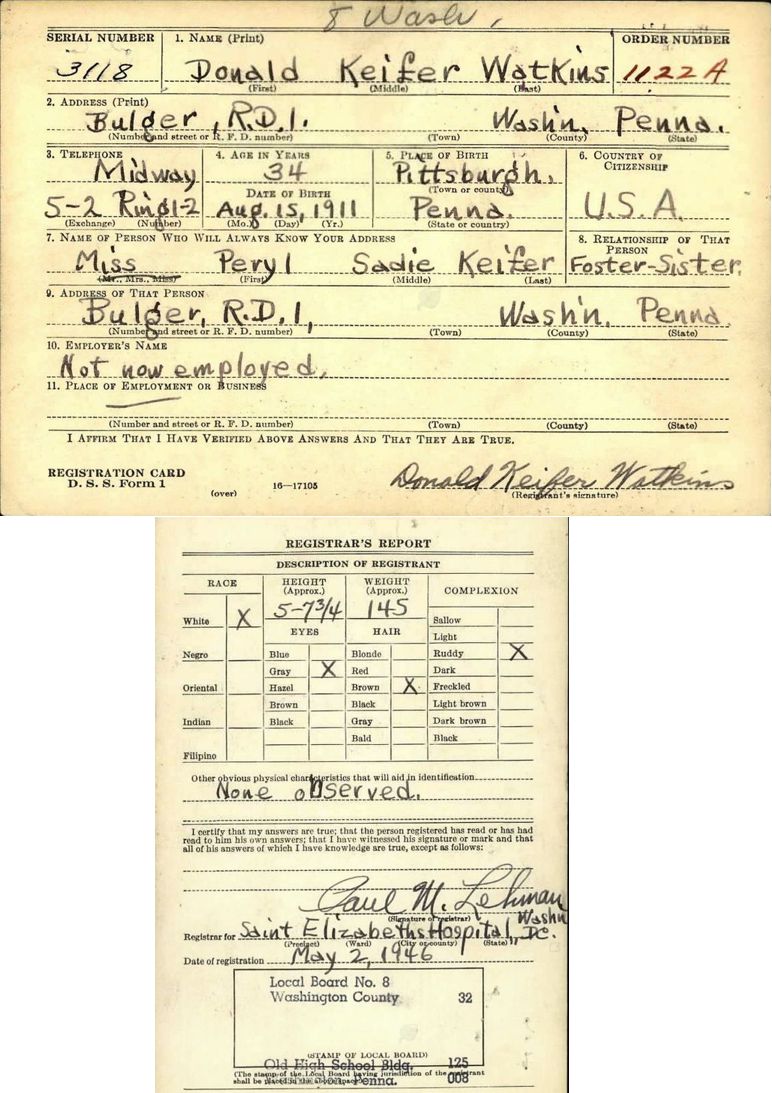 8 Wash.
SERIAL NUMBER 1. NAME (Print) ORDER NUMBER
3118 Donald Keifer Watkins 1122A
(First) (Middle) (Last)
2. ADDRESS (Print)
Bulger, R.D.1. Wash'n, Penna.
(Number and street or R. F. D. number) (Town) (County) (State)
3. TELEPHONE 4. AGE IN YEARS 5. PLACE OF BIRTH 6. COUNTRY OF CITIZENSHIP
Midway 34 Pittsburgh.
DATE OF BIRTH (Town or county)
5-2 Ring1-2 Aug. 15, 1911 Penna. U.S.A.
(Exchange) (Number) (Mo.) (Day) (Yr.) (State or country)
7. NAME OF PERSON WHO WILL ALWAYS KNOW YOUR ADDRESS 8. RELATIONSHIP OF THAT PERSON
Miss Peryl Sadie Keifer Foster-Sister.
(Mr., Mrs., Miss) (First) (Middle) (Last)
9. ADDRESS OF THAT PERSON
Bulger, R.D.1, Wash'n. Penna.
(Number and street or R. F. D. number) (Town) (County) (State)
10. EMPLOYER'S NAME
Not now employed.
11. PLACE OF EMPLOYMENT OR BUSINESS
(Number and street or R. F. D. number) (Town) (County) (State)
I AFFIRM THAT I HAVE VERIFIED ABOVE ANSWERS AND THAT THEY ARE TRUE.
REGISTRATION CARD
D. S. S. Form 1 (over) 16—17105 Donald Keifer Watkins
(Registrant's signature)
REGISTRAR'S REPORT
DESCRIPTION OF REGISTRANT
RACE HEIGHT (Approx.) WEIGHT (Approx.) COMPLEXION
White X 5-7 3/4 145 Sallow
EYES HAIR Light
Negro Blue Blonde Ruddy X
Gray X Red Dark
Oriental Hazel Brown X Freckled
Brown Black Light brown
Indian Black Gray Dark brown
Bald Black
Filipino
Other obvious physical characteristics that will aid in identification
None observed.
I certify that my answers are true; that the person registered has read or has had
read to him his own answers; that I have witnessed his signature or mark and that
all of his answers of which I have knowledge are true, except as follows:
Paul M. Lehman
(Signature of registrar)
Registrar for Saint Elizabeths Hospital, Washn DC.
(Precinct) (Ward) (City or county) (State)
Date of registration May 2, 1946
Local Board No. 8
Washington County 32
(STAMP OF LOCAL BOARD)
Old High School Bldg. 125
(The stamp of the Local Board having jurisdiction of the registrant
shall be placed in the above space.)
Penna. 008